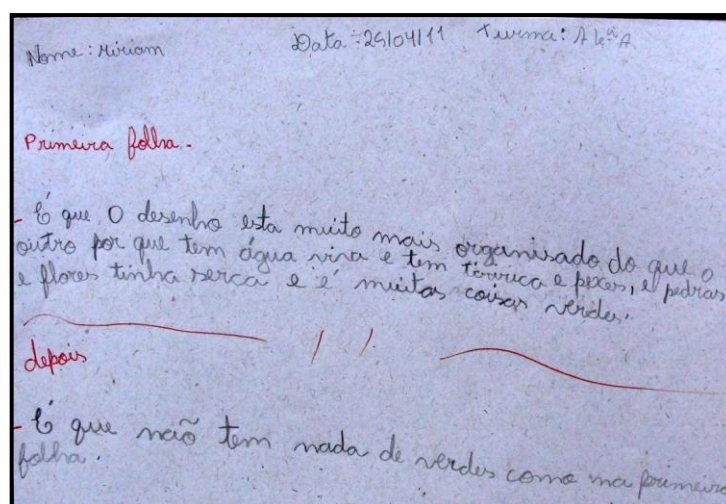 Nome: Miriam Data: 25/04/11 Turma: A 4ª A
Primeira folha.
- É que O desenho esta muito mais organisado do que o
outro por que tem água viva e tem e pexes, e pedras
e flores tinha serca e é muitas coisas verdes.
depois
- É que não tem nada de verdes como na primeira
folha.